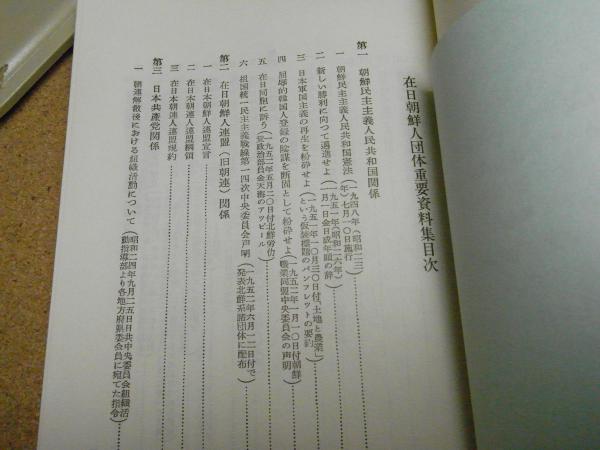 在日朝鮮人団体重要資料集目次
第一 朝鮮民主主義人民共和国関係
一 朝鮮民主主義人民共和国憲法(一九四八年(昭和二三年)七月一〇日施行)
二 新しい勝利に向つて邁進せよ(一九五一年(昭和二六年)一月一日金日成年頭の辞)
三 日本軍国主義の再生を粉砕せよ(一九五一年一〇月三〇日付、「土地と農業」という仮装標題のパンフレットの要約)
四 屈辱的韓国人登録の陰謀を断固として粉砕せよ(一九五二年一月一〇日付朝鮮職業同盟中央委員会の声明)
五 在日同胞に訴う(一九五二年五月二〇日付北鮮労仂党政治部員会天海のアツピール)
六 祖国統一民主主義戦線第一四次中央委員会声明(一九五二年六月一二日付で発表北鮮系諸団体に配布)
第二 在日朝鮮人連盟(旧朝連)関係
一 在日本朝鮮人連盟宣言
二 在日本朝連人連盟綱領
三 在日本朝連人連盟規約
第三 日本共産党関係
一 朝連解散後における組織活動について(昭和二四年九月二五日日共中央委員会組織活動指導部より各地方府県委員会に宛てた指令)